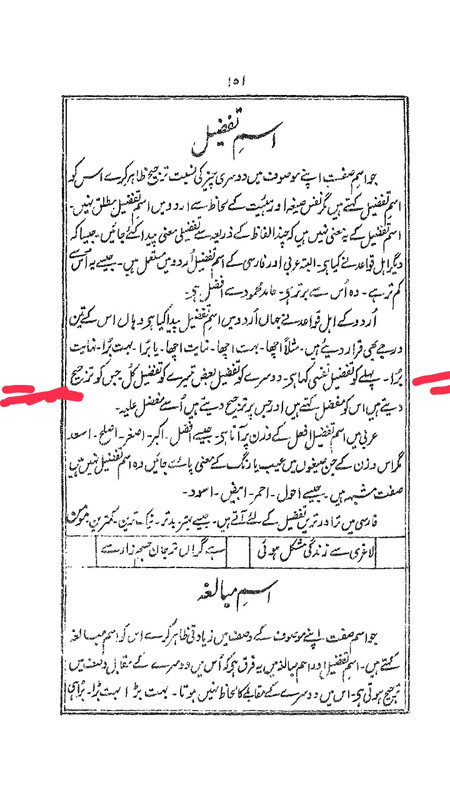 ۱۵۱
اسمِ تفضیل
جو اسمِ صفت اپنے موصوف میں دوسری چیز کی نسبت ترجیح ظاہر کرے اس کو
اسم تفضیل کہتے ہیں مگر نفس صیغہ اور ہیئیت کے لحاظ سے اردو میں اسم تفضیل مطلق نہیں۔
اسم تفضیل کے یہ معنی نہیں ہیں کہ چند الفاظ کے ذریعہ سے تفضیلی معنی پیدا کئے جائیں۔ جیسا کہ
دیگر اہل قواعد نے کیا ہی۔ البتہ عربی اور فارسی کے اسم تفضیل اُردو میں مستعمل ہیں۔ جیسے یہ اُس سے
کم تر ہے۔ وہ اُس سے برتر ہی۔ حامد محمود سے افضل ہی۔
اُردو کے اہل قواعد نے جہاں اُردو میں اسم تفضیل پیدا کیا ہی وہاں اس کے تین
درجے بھی قرار دیے ہیں۔ مثلاً اچھا۔ بہت اچھا۔ نہایت اچھا۔ یا بُرا۔ بہت بُرا۔ نہایت
بُرا۔ پہلے کو تفضیل نفسی کہا ہی۔ دوسرے کو تفضیل بعض تیسرے کو تفضیل کل جس کو ترجیح
دیتے ہیں اس کو مفضل کہتے ہیں اور جس پر ترجیح دیتے ہیں اُسے مفضل علیہ۔
عربی میں اسم تفضیل افعل کے وزن پر آتا ہی۔ جیسے افضل۔ اکبر۔ اصغر۔ اصلح۔ اسعد
مگر اس وزن کے جن صیغوں میں عیب یا رنگ کے معنی پائے جائیں وہ اسم تفضیل نہیں ہیں
صفت مشبہ ہیں۔ جیسے احول۔ احمر۔ ابیض۔ اسود۔
فارسی میں تر اور ترین تفضیل کے لئے آتے ہیں۔ جیسے بہتر۔ بدتر۔ نیک ترین۔ کمترین۔ مومن
لاغری سے زندگی مشکل ہوئی ہے گراں تر جان جسم زار سے
اسمِ مبالغہ
جو اسم صفت اپنے موصوف کے وصف میں زیادتی ظاہر کرے اس کو اسم مبالغہ
کہتے ہیں۔ اسم تفضیل اور اسم مبالغہ میں یہ فرق ہی کہ اُس میں دوسرے کے مقابل وصف میں
ترجیح ہوتی ہی۔ اس میں دوسرے کے مقابلے کا لحاظ نہیں ہوتا۔ بہت بڑا۔ بہت بڑا۔ بڑا ہی